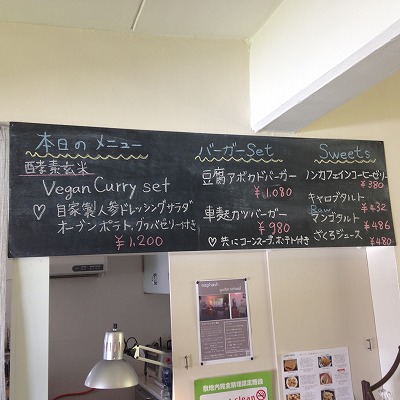 本日のメニュー
酵素玄米
Vegan Curry set
♡ 自家製人参ドレッシングサラダ
オーブンポテト、グァバゼリー付き
￥1,200
バーガーSet
豆腐アボカドバーガー
￥1,080
車麩カツバーガー
￥980
♡ 共にコーンスープ、ポテト付き
Sweets
ノンカフェインコーヒーゼリー
￥380
キャロブタルト
￥432
Raw
マンゴタルト
￥486
ざくろジュース
￥480
敷地内完全禁煙実施施設